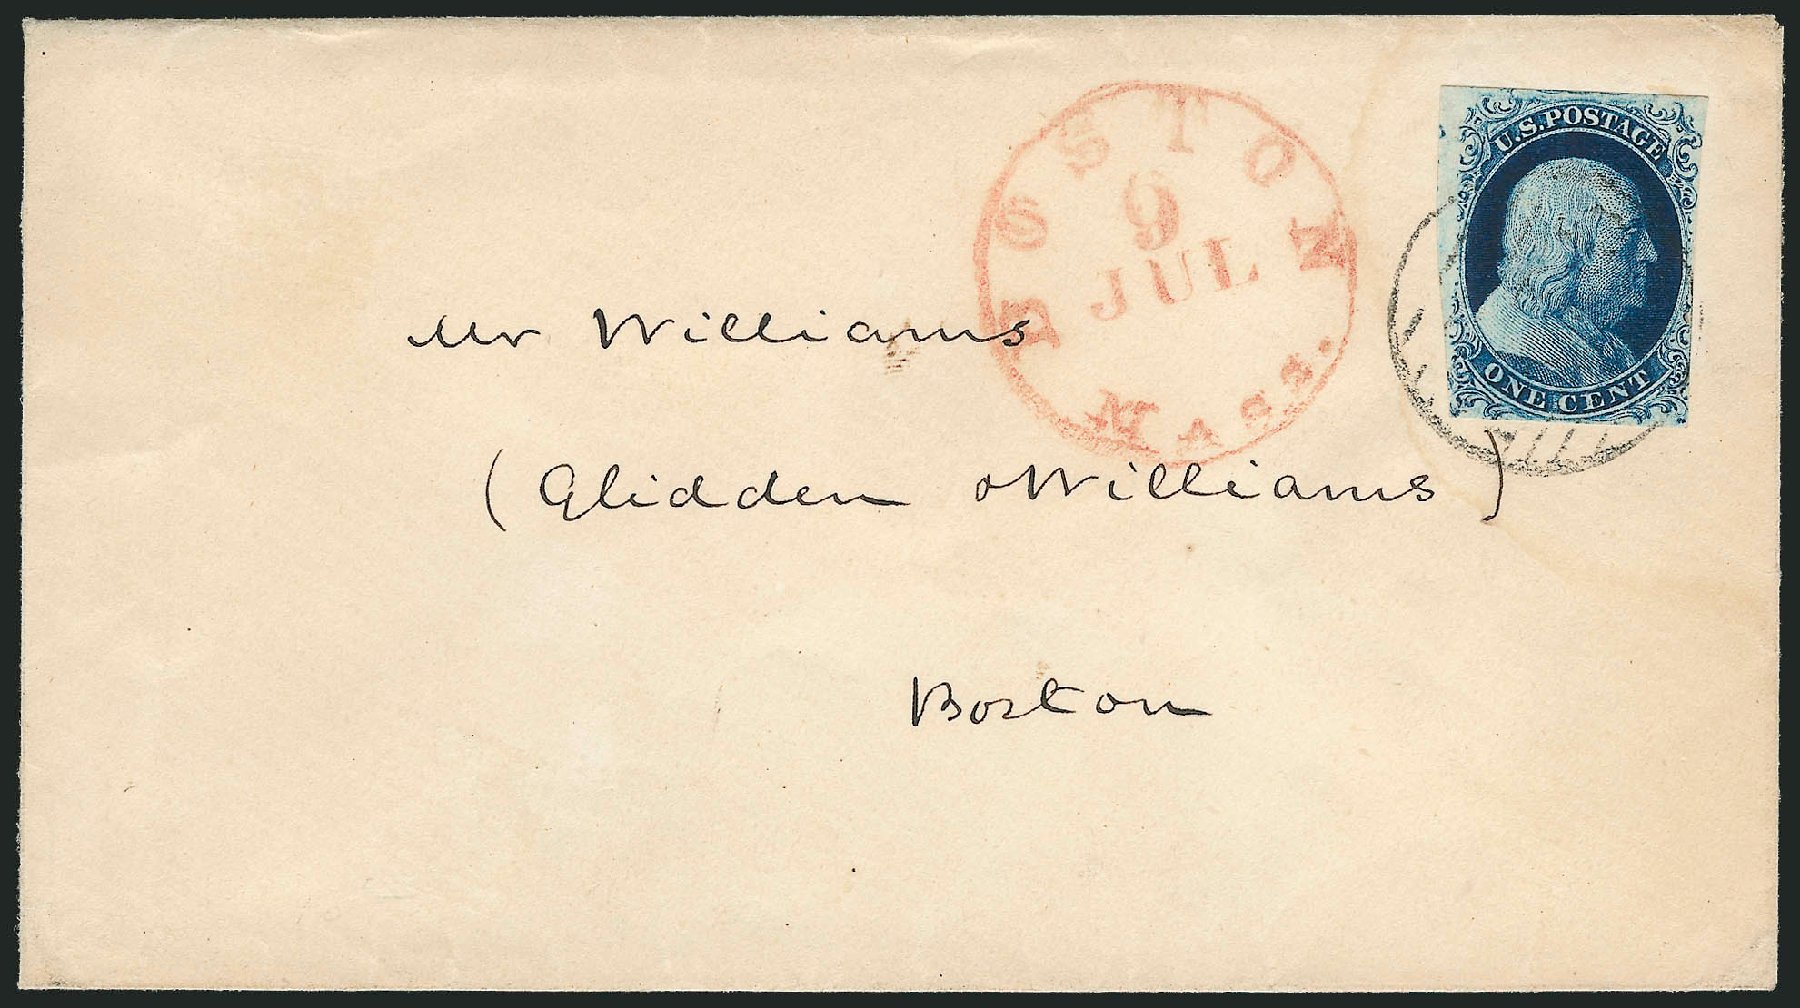 BOSTON
9
JUL
MASS.
U.S. POSTAGE
ONE CENT
Mr Williams
(Glidden & Williams)
Boston